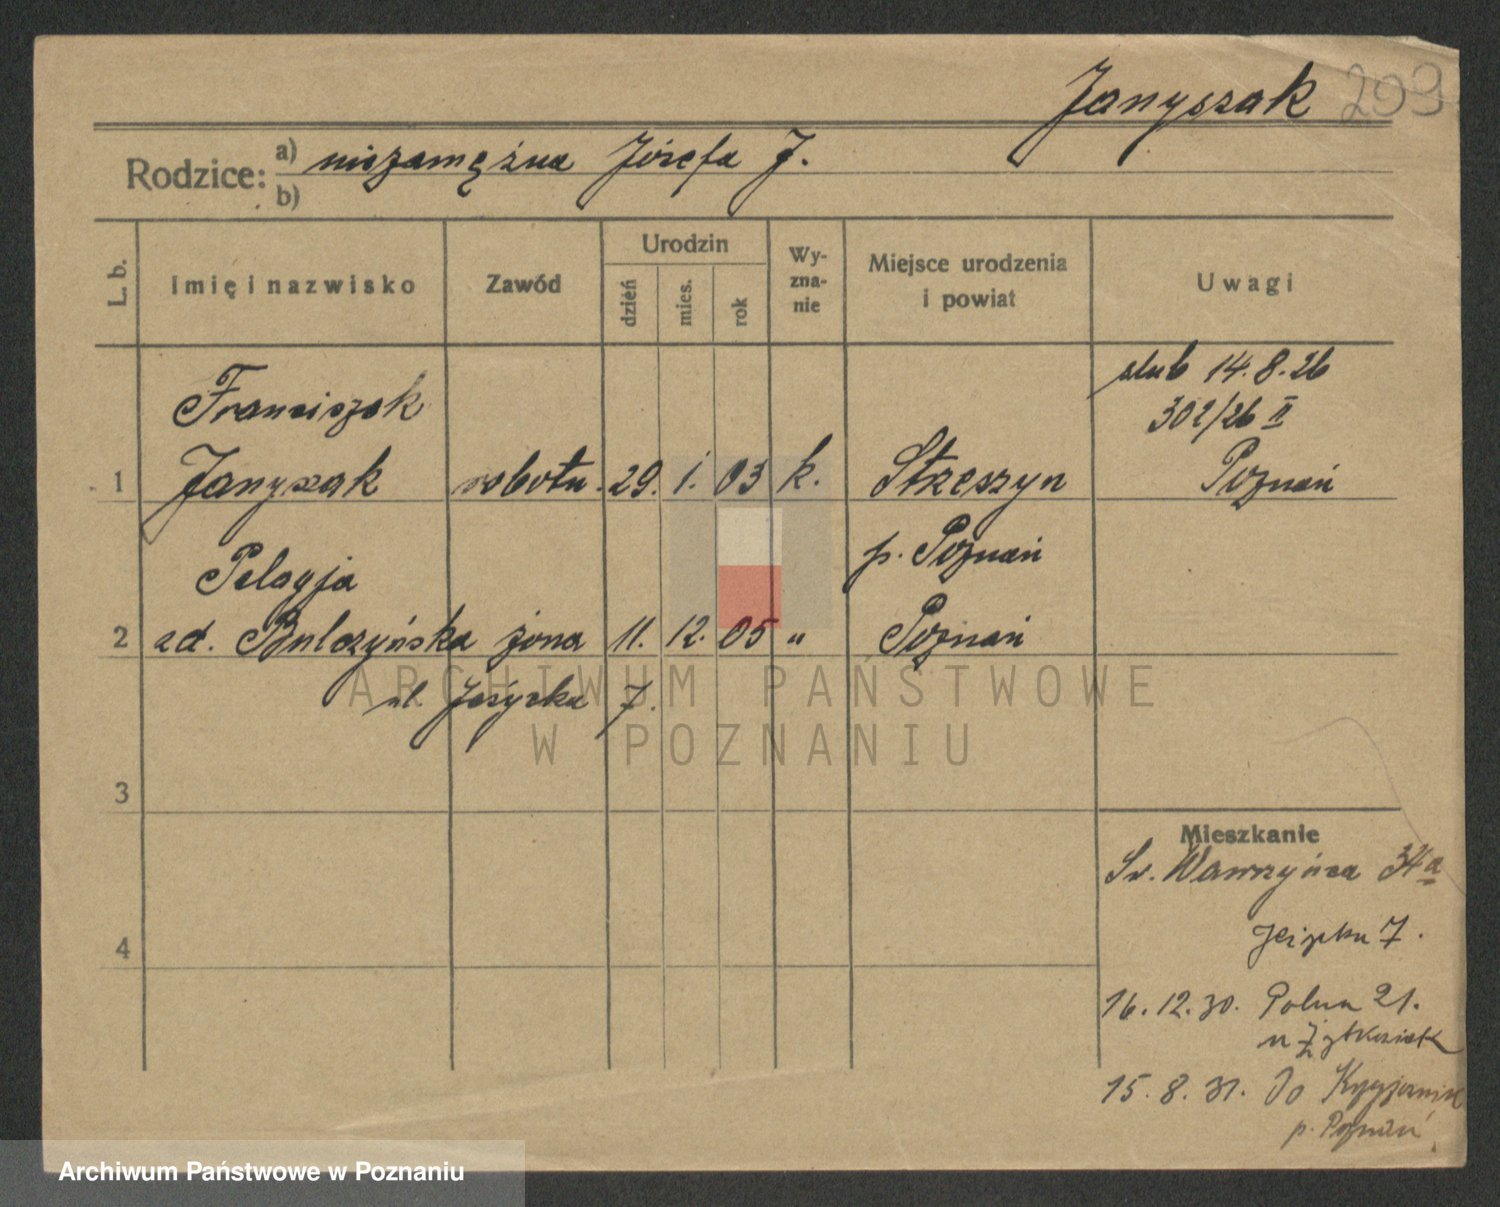 Janyszak 209
Rodzice:
a) niezamężna Józefa J.
b)
L. b.
Imię i nazwisko
Zawód
Urodzin
dzień
mies.
rok
Wy-
zna-
nie
Miejsce urodzenia
i powiat
Uwagi
ślub 14.8.26
302/26 II
Poznań
Franciszek
1 Janyszak robotn. 29. 1. 03 k. Strzeszyn
p. Poznań
Pelagja
2 zd. Bulczyńska żona 11. 12. 05 " Poznań
ul. Jeżycka 7.
3
4
Mieszkanie
Św. Wawrzyńca 34a
Jeżycka 7.
16.12.30. Polna 21.
u
15.8.31. do
p. Poznań
ARCHIWUM PAŃSTWOWE
W POZNANIU
Archiwum Państwowe w Poznaniu